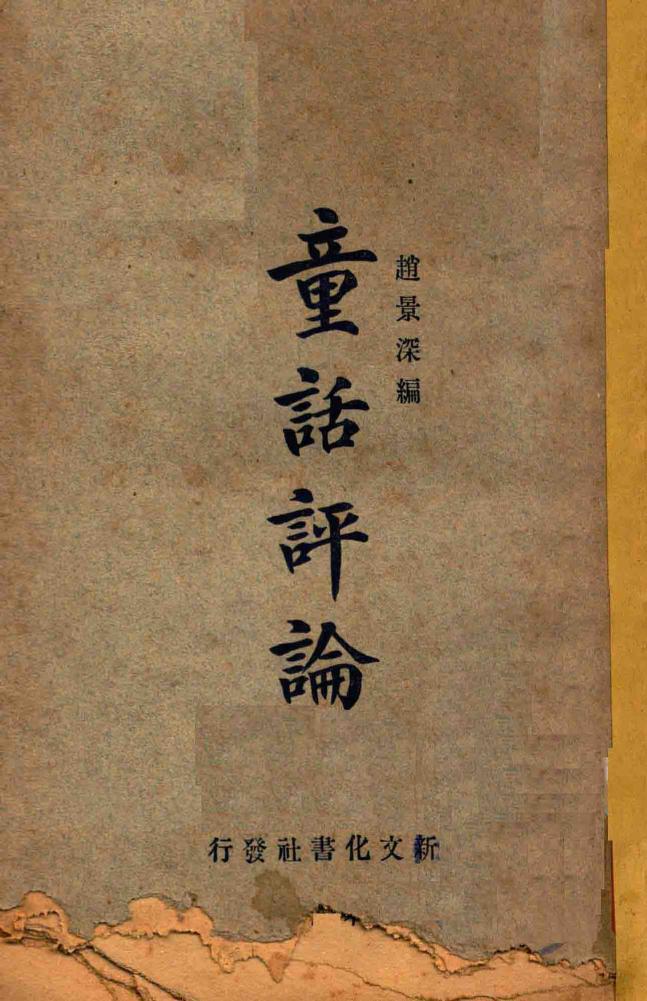 趙景深編
童話評論
新文化書社發行